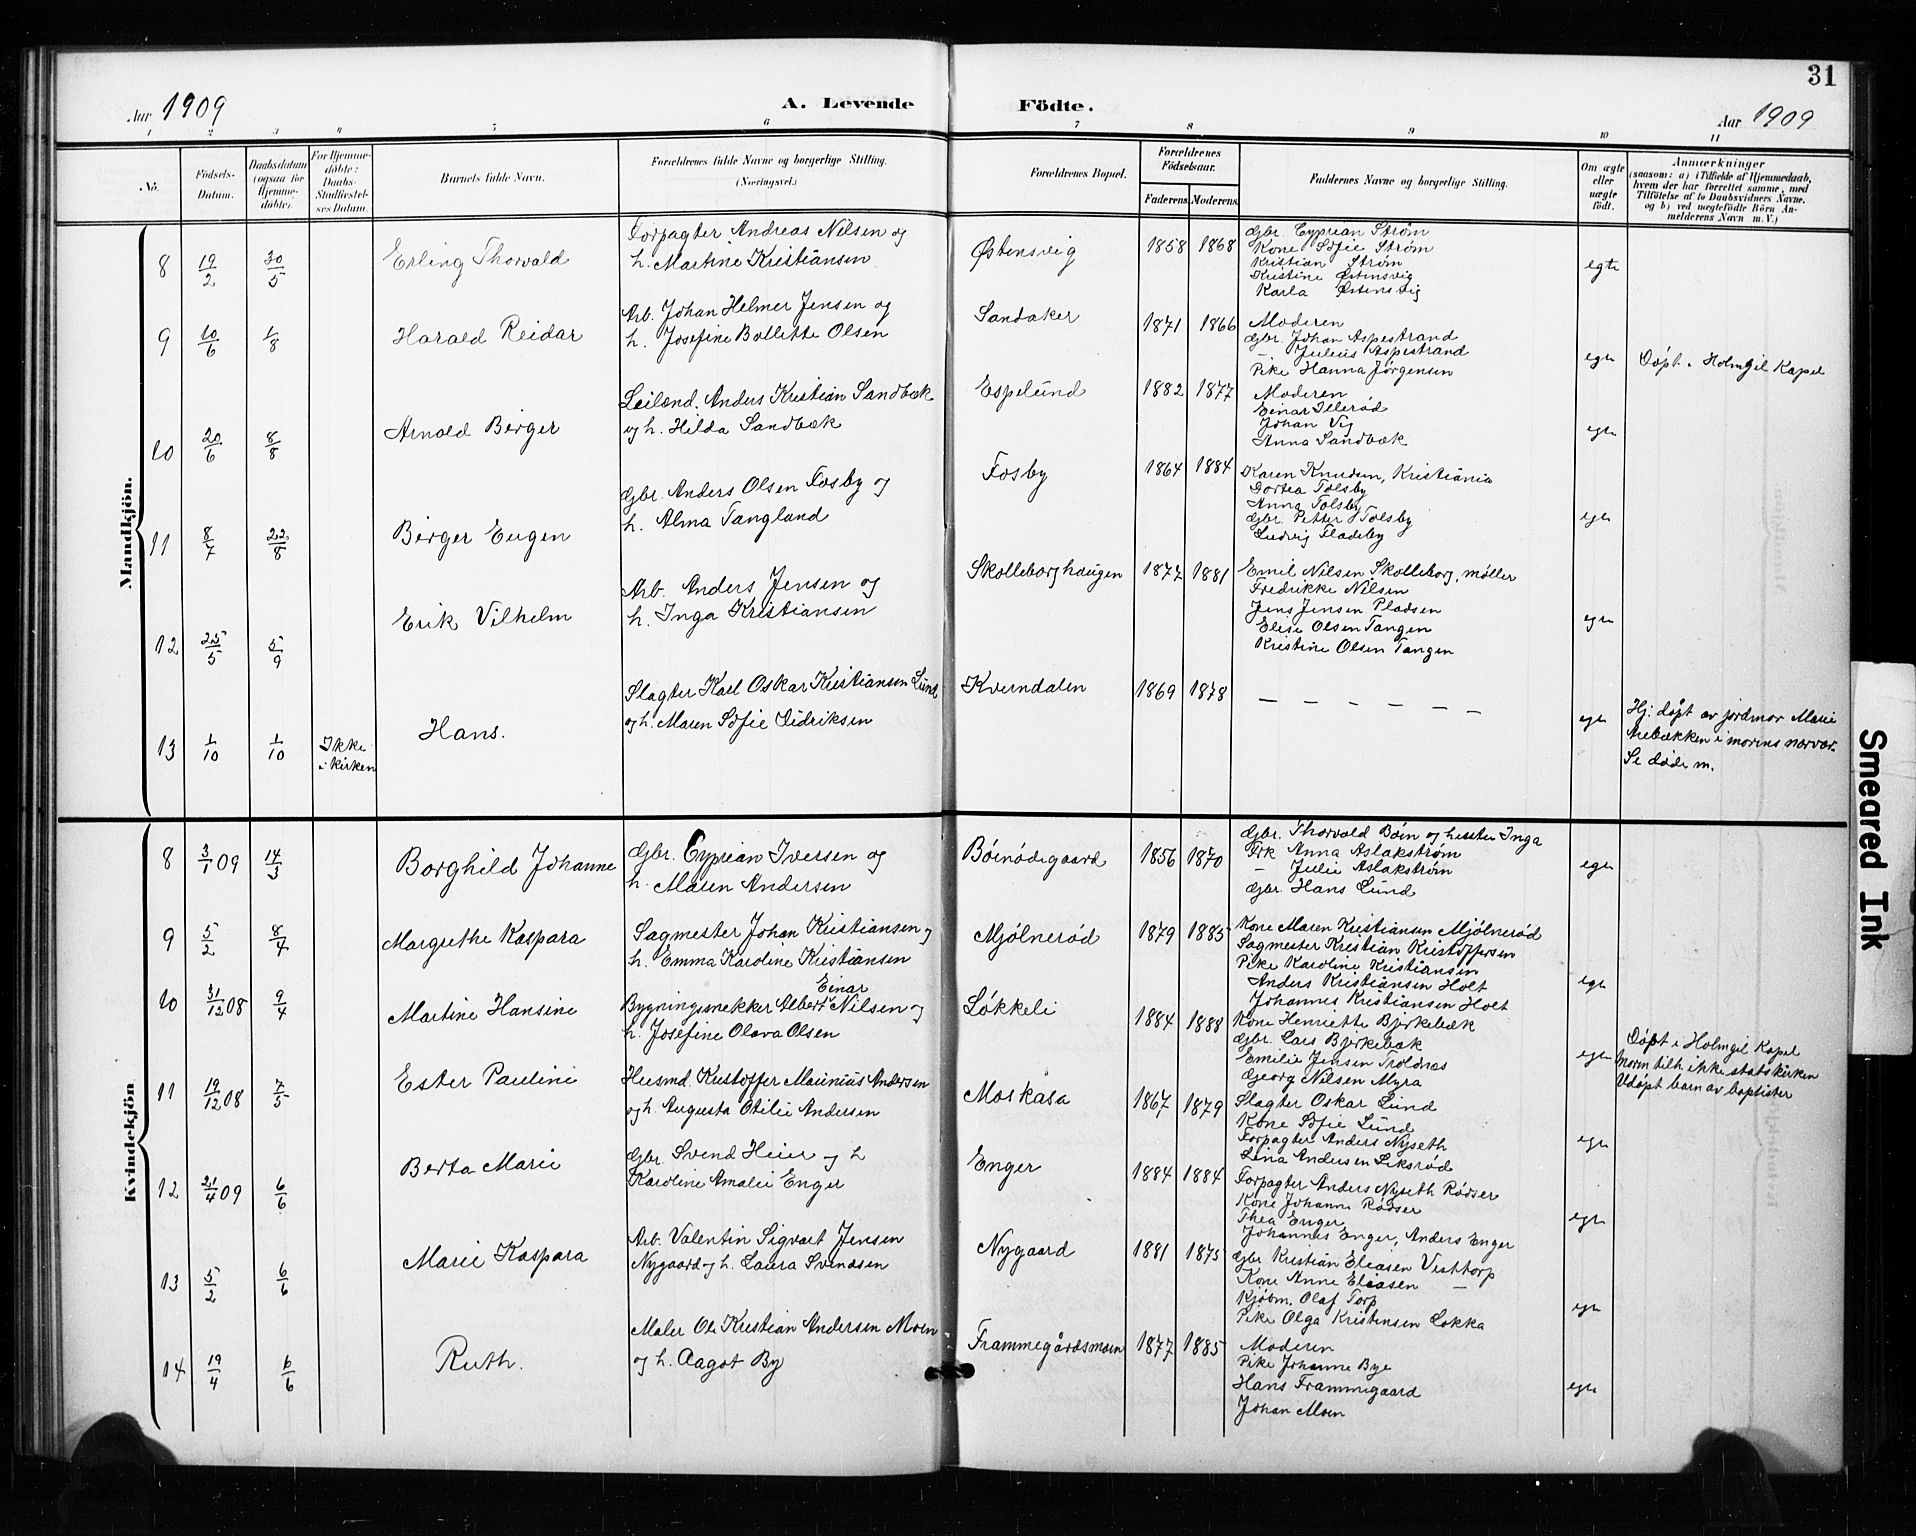 31
Aar 1909
A. Levende Födte.
Aar 1909
1 2 3 4 5 6 7 8 9 10 11
No.
Födsels-Datum.
Daabsdatum (ogsaa for Hjemme-döbte).
For Hjemme-döbte: Daabs-Stadfæstel-ses Datum.
Barnets fulde Navn.
Forældrenes fulde Navne og borgerlige Stilling. (Næringsvei.)
Forældrenes Bopæl.
Forældrenes Födselsaar.
Faderens Moderens
Faddernes Navne og borgerlige Stilling.
Om ægte eller uægte födt.
Anmærkninger
(saasom: a) i Tilfælde af Hjemmedaab, hvem der har forrettet samme, med Tilföielse af to Daabsvidners Navne. og b) ved uægtefödte Börn An-melderens Navn m. V.)
Mandkjön.
8 19/2 30/5 Erling Thorvald
Forpagter Andreas Nilsen og
h. Martine Kristiansen
Østensvig 1858 1868
Gbr. Cyprian Strøm
Kone Sofie Strøm
Kristian Strøm
Kristine Østensvig
Karla Østensvig
egte
9 10/6 1/8 Harald Reidar
Arb. Johan Helmer Jensen og
h. Josefine Bollette Olsen
Sandaker 1871 1866
Moderen
Gbr. Johan Aspestrand
— Julius Aspestrand
Pike Hanna Jørgensen
egte
Døpt i Holmgil Kapel
10 20/6 8/8 Arnold Birger
Leilænd. Anders Kristian Sandbæk
og h. Hilda Sandbæk
Espelund 1882 1877
Moderen
Einar Illerød
Johan Vig
Anna Sandbæk
egte
11 8/7 22/8 Birger Eugen
Gbr. Anders Olsen Fosby og
h. Alma Tangland
Fosby 1864 1884
Karen Knudsen, Kristiania
Dortea Tolsby
Anna Tolsby
Gbr. Petter Tolsby
Ludvig Fladeby
egte
12 25/5 5/9 Erik Vilhelm
Arb. Anders Jensen og
h. Inga Kristiansen
Skolleborghaugen 1877 1881
Emil Nilsen Skolleborg, møller
Fredrikke Nilsen
Jens Jensen Pladsen
Elise Olsen Tangen
Kristine Olsen Tangen
egte
13 1/10 1/10 Ikke i kirken Hans.
Slagter Karl Oskar Kristiansen Lund
og h. Maren Sofie Didriksen
Kverndalen 1869 1878
— — — — — —
egte
Hj. døpt av jordmor Marie
Arebækken i morens nærvær.
Se døde m.
Kvindekjön
8 3/1 09 14/3 Borghild Johanne
Gbr. Cyprian Iversen og
h. Maren Andersen
Bøinødegaard 1856 1870
Gbr. Thorvald Bøin og hustru Inga
Frk Anna Aslakstrøm
— Julie Aslakstrøm
Gbr. Hans Lund
egte
9 5/2 8/4 Margrethe Kaspara
Sagmester Johan Kristiansen og
h. Emma Karoline Kristiansen
Mjølnerød 1879 1885
Kone Maren Kristiansen Mjølnerød
Sagmester Kristian Kristoffersen
Pike Karoline Kristiansen
Anders Kristiansen Holt
Johannes Kristiansen Holt
egte
10 31/12 08 9/4 Martine Hansine
Einar
Bygningssnekker Albert Nilsen og
h. Josefine Olava Olsen
Løkkeli 1884 1888
Kone Henriette Bjerkebæk
Gbr. Lars Bjerkebæk
Emilie Jensen Troldnæs
Georg Nilsen Myra
egte
Døpt i Holmgil Kapel
Moren tilh. ikke statskirken
Udøpt barn av baptister
11 19/12 08 7/5 Ester Pauline
Husmd. Kristoffer Maurinius Andersen
og h. Augusta Otilie Andersen
Moskasa 1867 1879
Slagter Oskar Lund
Kone Sofie Lund
Forpagter Anders Nyseth
Lina Andersen Liksrød
egte
12 21/4 09 6/6 Berta Marie
Gbr. Svend Heier og h
Karoline Amalie Enger
Enger 1884 1884
Forpagter Anders Nyseth Rødser
Kone Johanne Rødser
Thea Enger
Johannes Enger, Anders Enger
egte
13 5/2 6/6 Marie Kaspara
Arb. Valentin Sigvart Jensen
Nygaard og h. Laura Svendsen
Nygaard 1881 1875
Gbr Kristian Eliasen Visttorp
Kone Anne Eliasen —
Kjøbm. Olaf Torp
Pike Olga Kristensen Løkka
egte
14 19/4 6/6 Ruth.
Maler Ole Kristian Andersen Moen
og h. Aagot By
Frammegårdsmoen 1877 1885
Moderen
Pike Johanne Bye
Hans Frammegaard
Johan Moen
egte
Smeared Ink